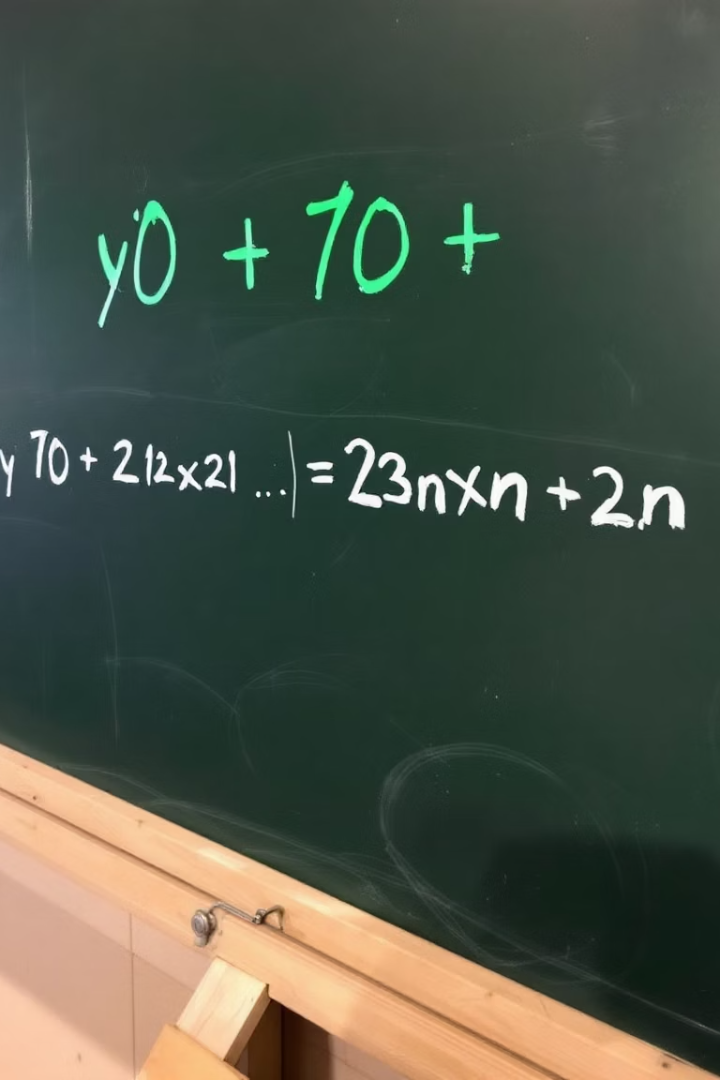 y0 + 70 +
y 70 + 212x21 ...| = 23nxn + 2n